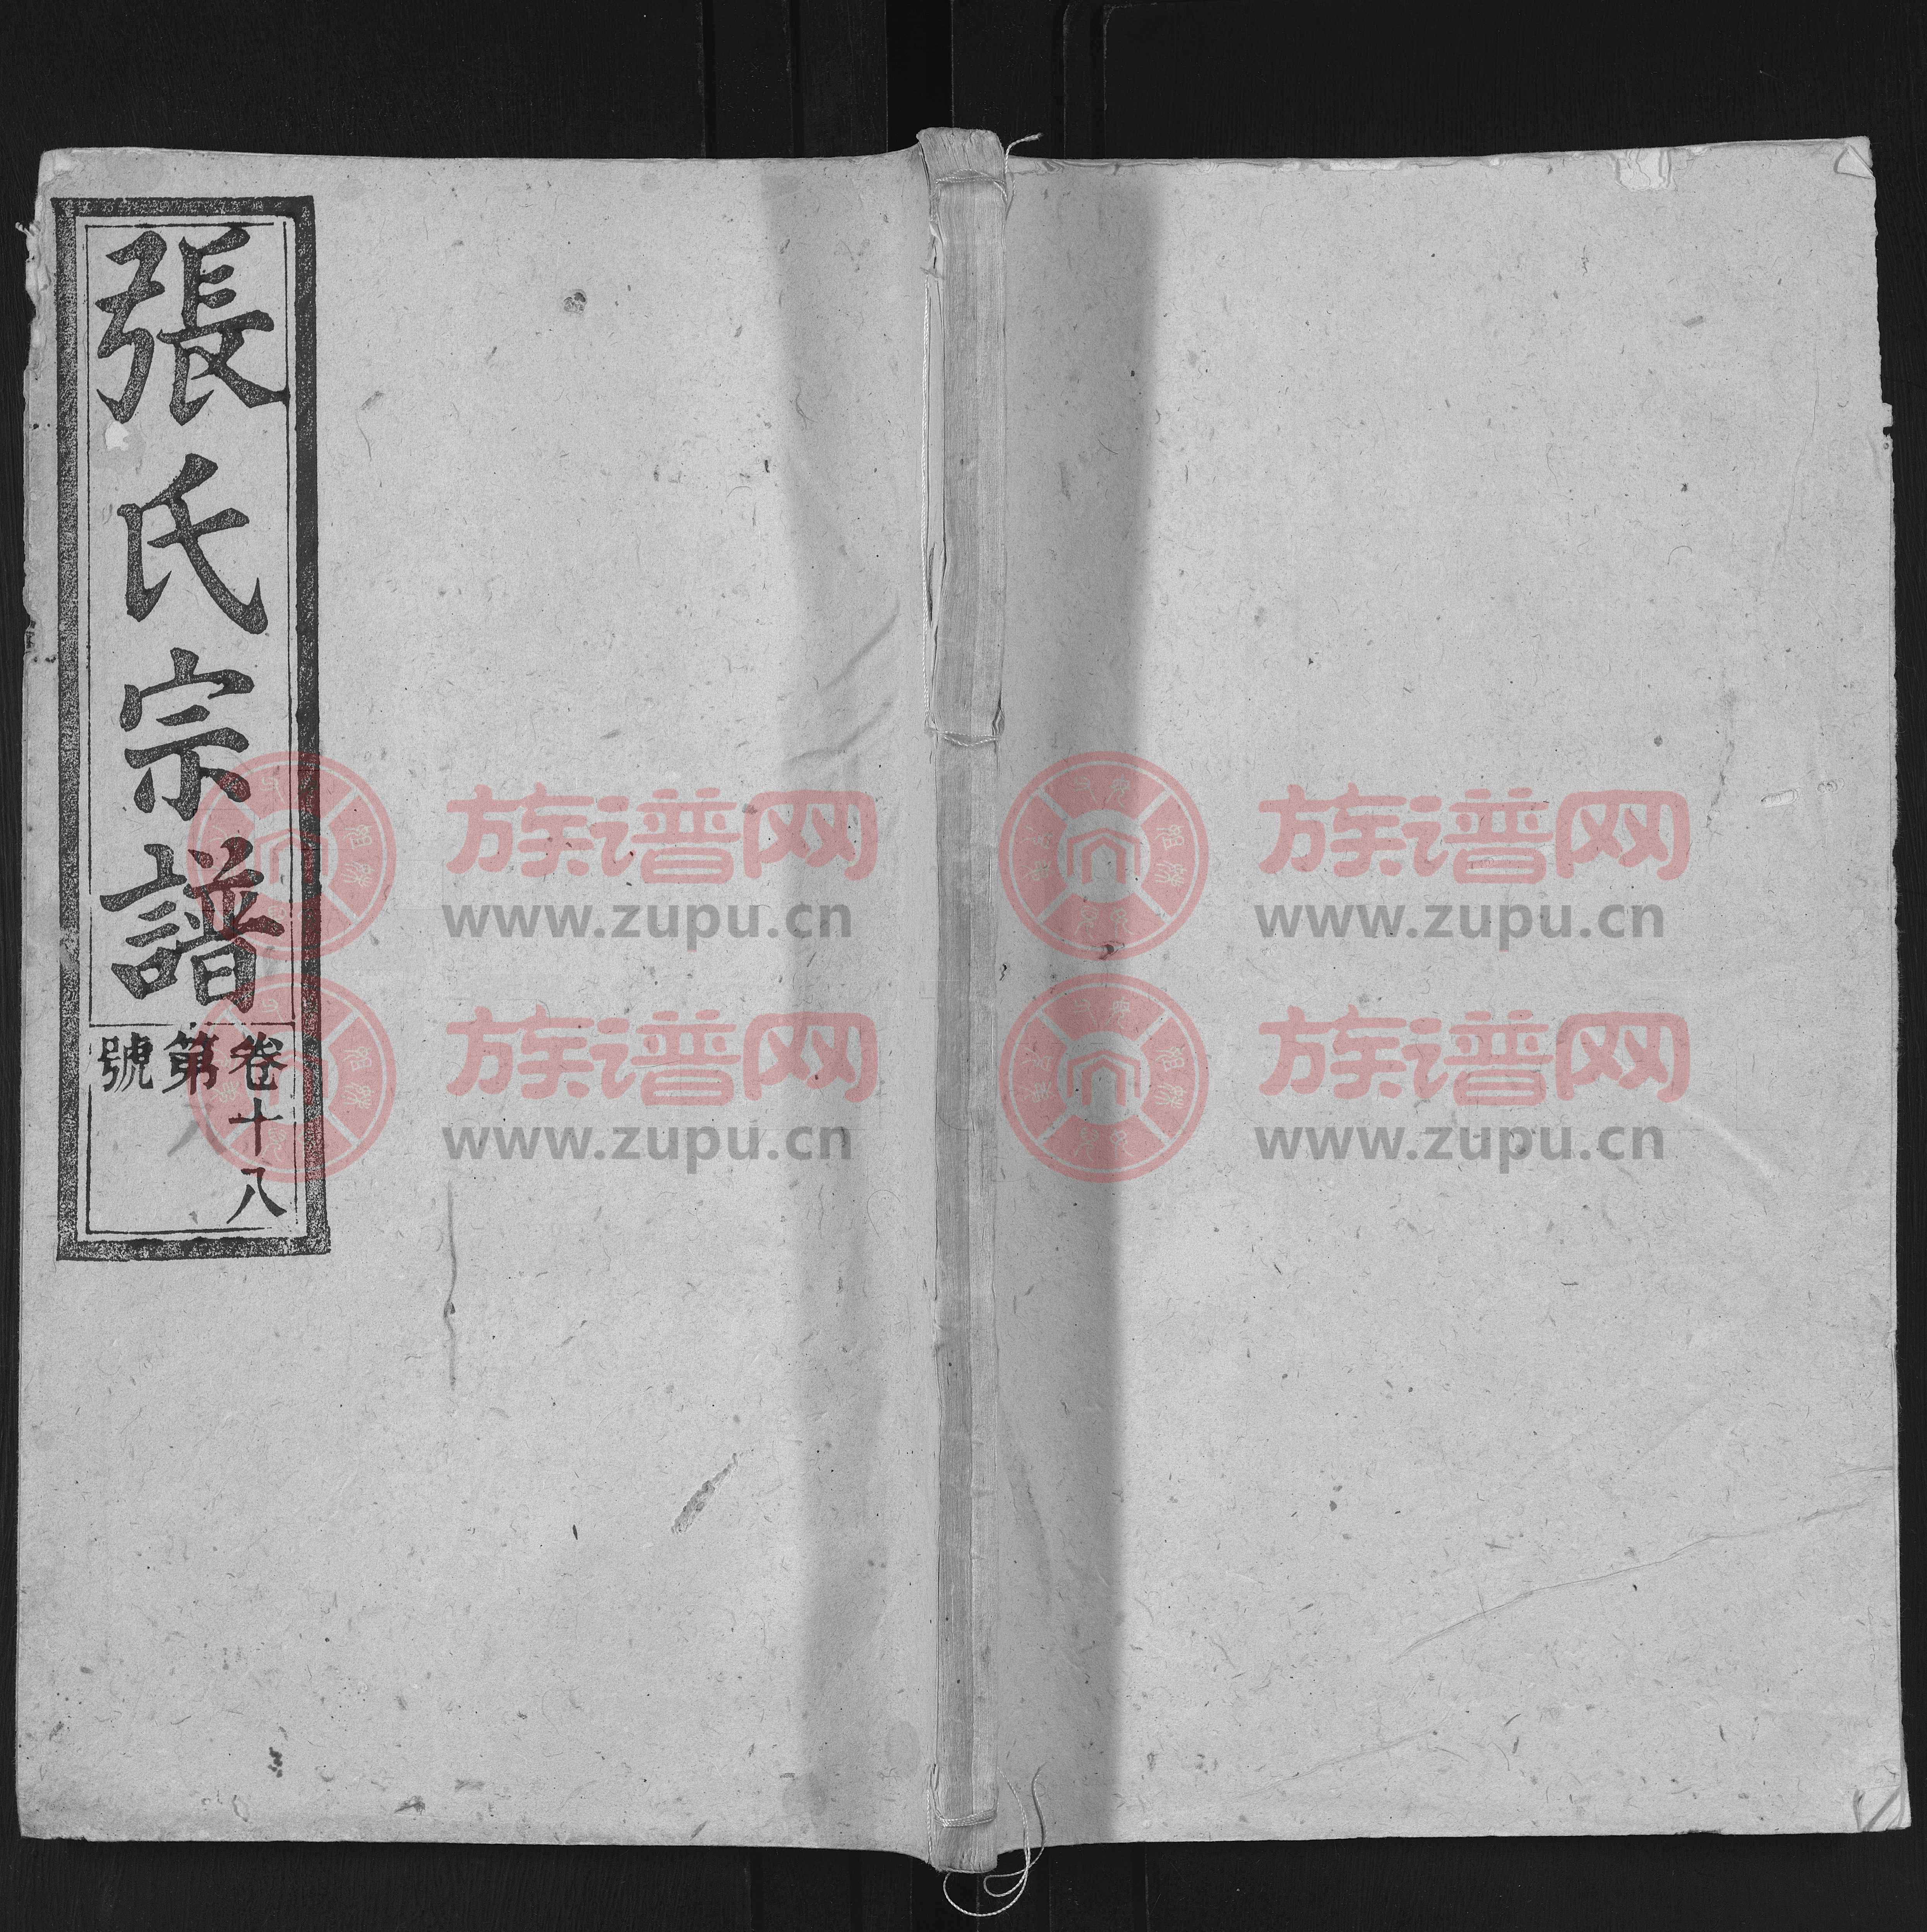 張氏宗譜
卷十八
第
號
族谱网
www.zupu.cn
族谱网
www.zupu.cn
族谱网
www.zupu.cn
族谱网
www.zupu.cn